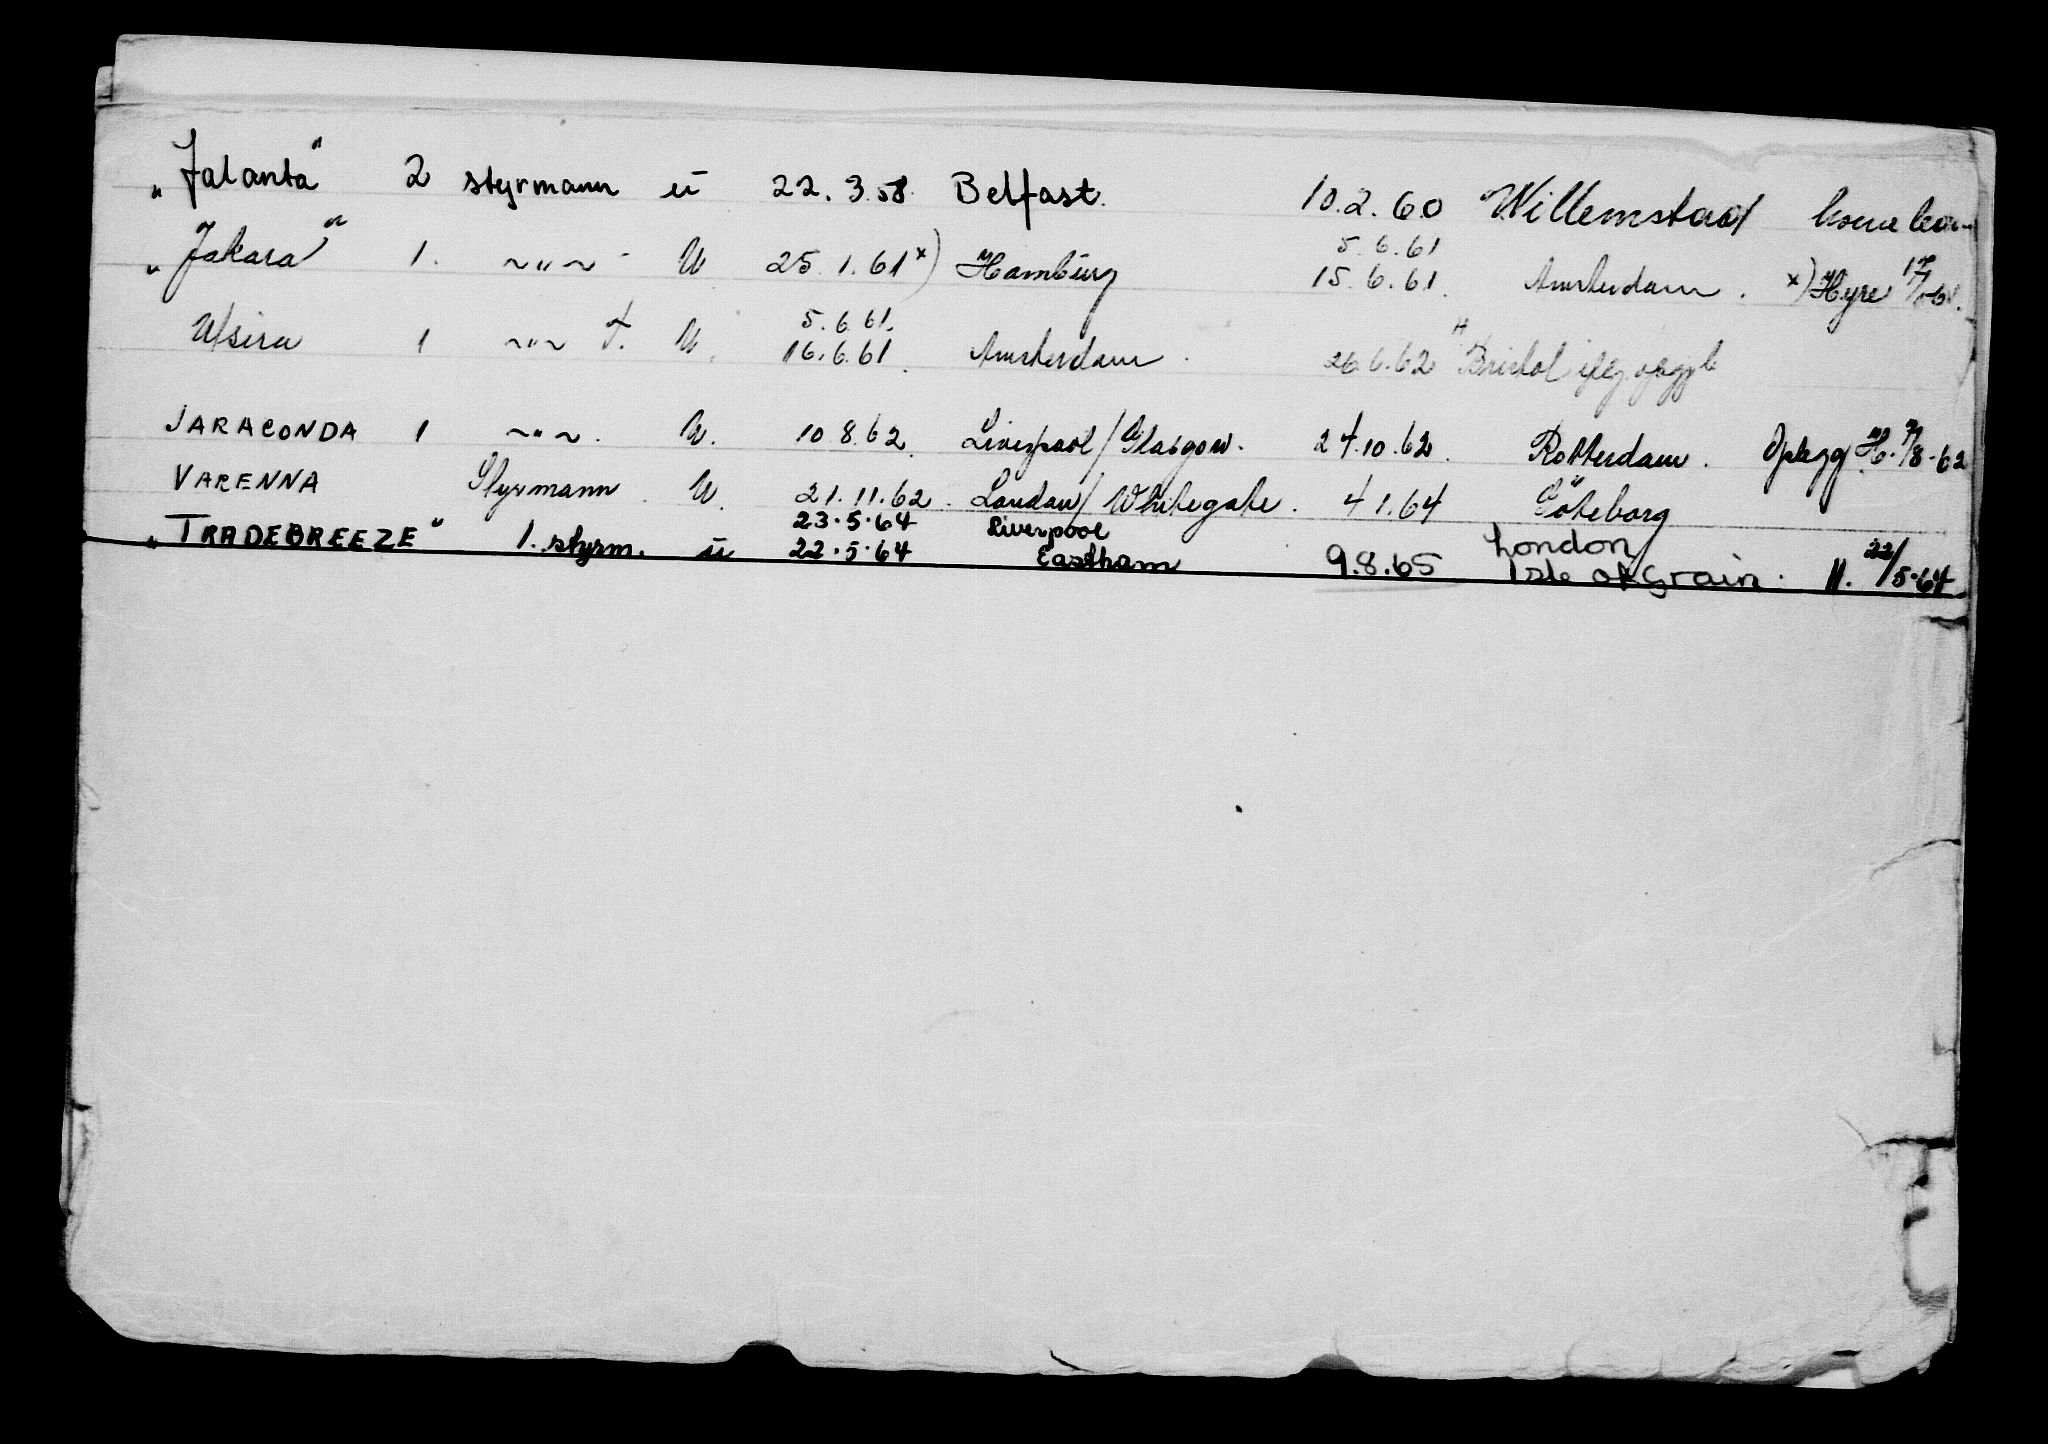 „Jalanta" 2 styrmann u 22.3.58. Belfast. 10.2.60 Willemstad
„Jakara" 1. ~"~ U 25.1.61 x) Hamburg 5.6.61 15.6.61. Amsterdam. x) Hyre
Utsira 1 ~"~ f. U. 5.6.61. 16.6.61. Amsterdam. 26.6.62 Bristol
JARACONDA 1 ~"~. U. 10.8.62. Liverpool/Glasgow. 24.10.62. Rotterdam. Oplagg H. 7/8-62
VARENNA Styrmann. U. 21.11.62. London/Whitegate. 4.1.64 Göteborg
„TRADEBREEZE" 1. styrm. u 23.5.64 22.5.64 Liverpool Eastham 9.8.65 London/ Isle of Grain. H. 22/5-64